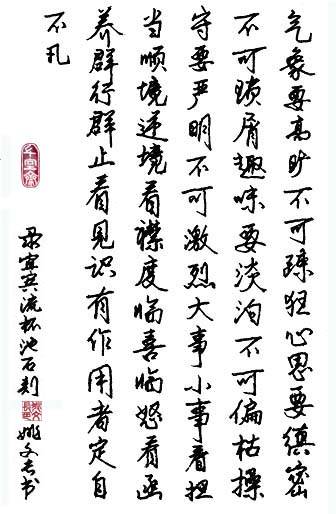 气象要高旷不可疎狂心思要缜密
不可琐屑趣味要淡泊不可偏枯操
守要严明不可激烈大事小事看担
当顺境逆境看襟度临喜临怒看函
养群行群止看见识有作用者定自
不凡
录宜宾流杯池石刻
姚文长书